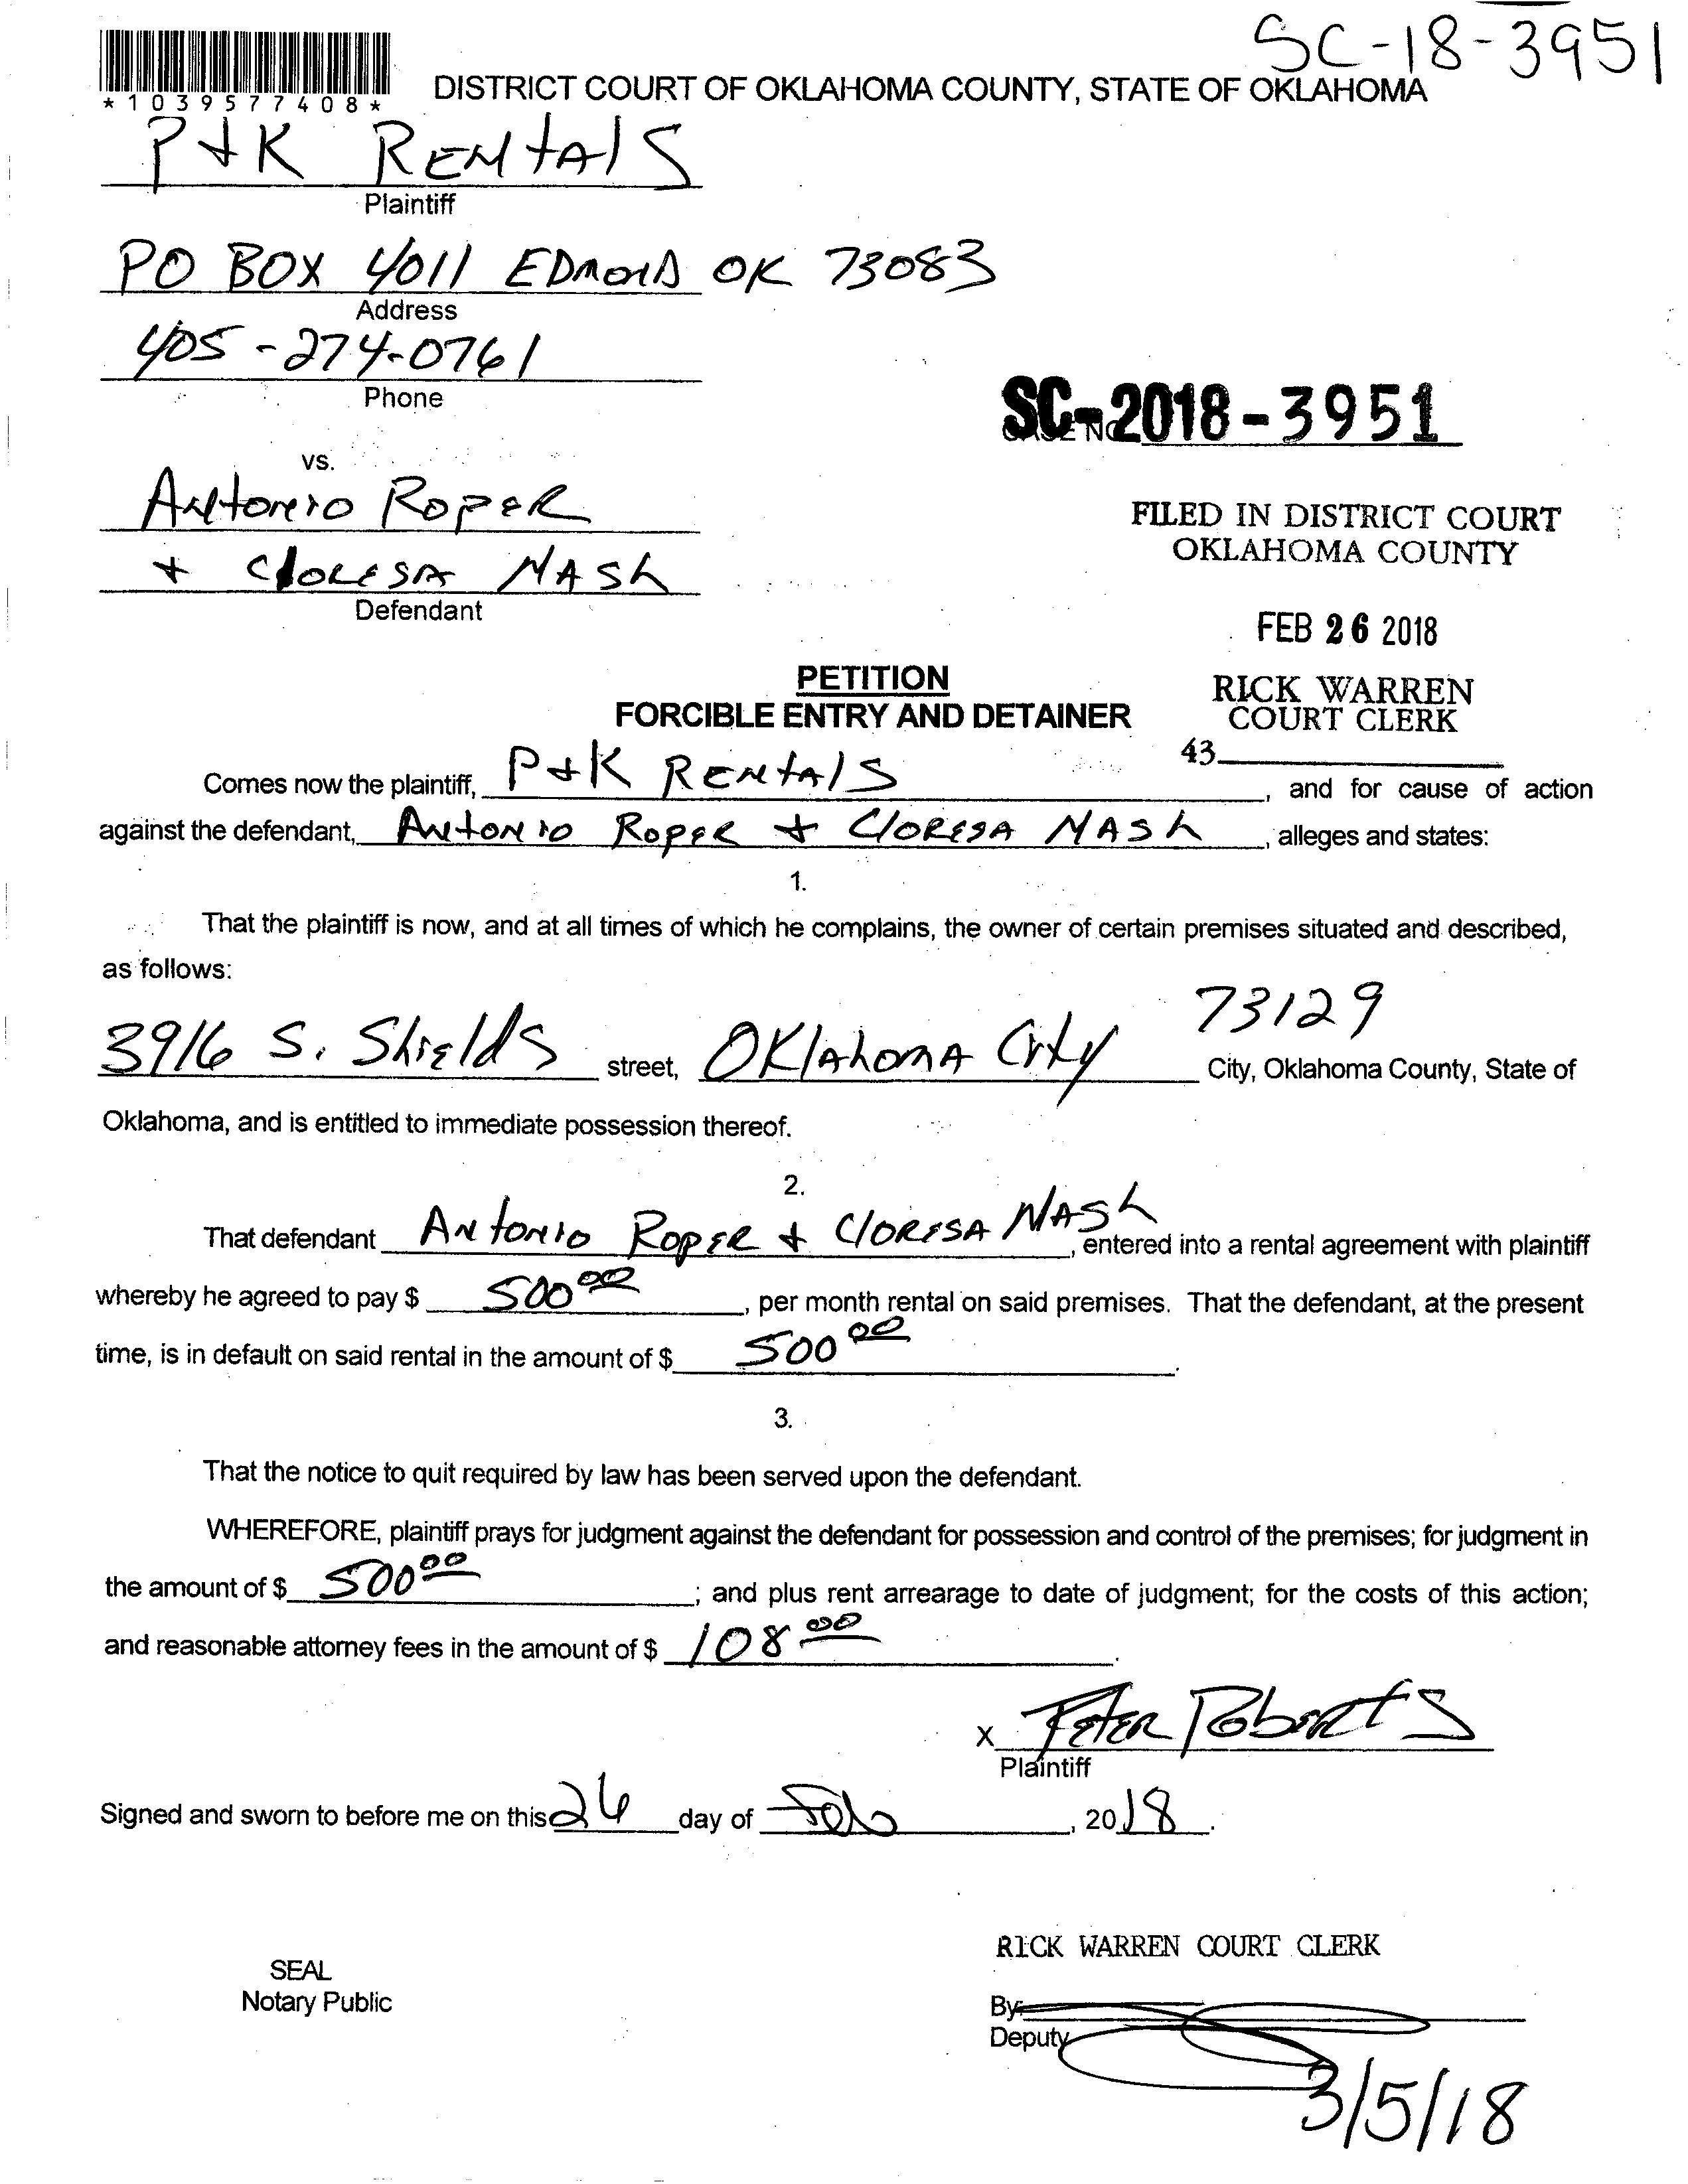 SC-18-3951
*1039577408*
DISTRICT COURT OF OKLAHOMA COUNTY, STATE OF OKLAHOMA
P+K RENTALS
Plaintiff
PO BOX 4011 EDMOND OK 73083
Address
405-274-0761
Phone
SC-2018-3951
CASE NO.
vs.
Antonio Roper
+ Cloresa Nash
Defendant
FILED IN DISTRICT COURT
OKLAHOMA COUNTY
FEB 26 2018
RICK WARREN
COURT CLERK
43
PETITION
FORCIBLE ENTRY AND DETAINER
Comes now the plaintiff, P+K RENTALS, and for cause of action
against the defendant, Antonio Roper + Cloresa Nash, alleges and states:
1.
That the plaintiff is now, and at all times of which he complains, the owner of certain premises situated and described,
as follows:
73129
3916 S. Shields street, Oklahoma City City, Oklahoma County, State of
Oklahoma, and is entitled to immediate possession thereof.
2.
That defendant Antonio Roper + Cloresa Nash, entered into a rental agreement with plaintiff
whereby he agreed to pay $ 500 00, per month rental on said premises. That the defendant, at the present
time, is in default on said rental in the amount of $ 500 00.
3.
That the notice to quit required by law has been served upon the defendant.
WHEREFORE, plaintiff prays for judgment against the defendant for possession and control of the premises; for judgment in
the amount of $ 500 00; and plus rent arrearage to date of judgment; for the costs of this action;
and reasonable attorney fees in the amount of $ 108 00.
X Peter Roberts
Plaintiff
Signed and sworn to before me on this 26 day of Feb, 2018.
RICK WARREN COURT CLERK
SEAL
Notary Public
By:
Deputy
3/5/18